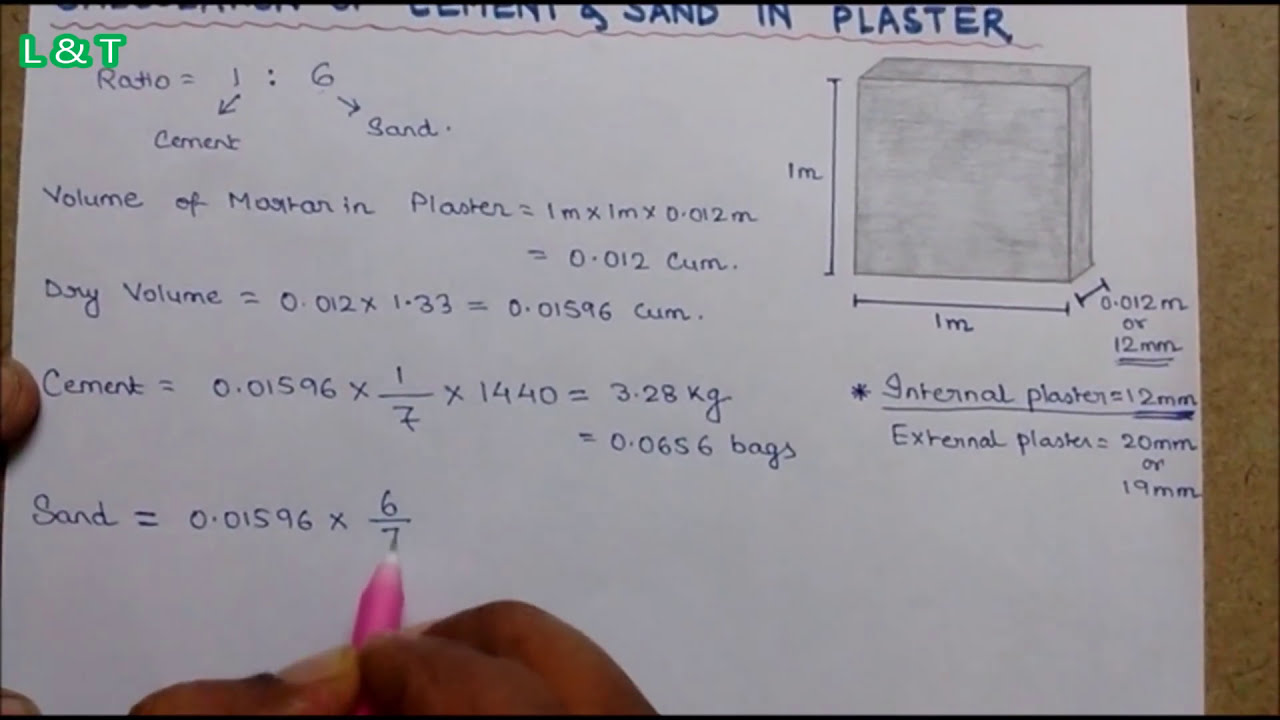 CALCULATION OF CEMENT & SAND IN PLASTER
L&T
Ratio = 1 : 6
Cement
Sand.
Volume of Mortar in Plaster = 1m x 1m x 0.012m
= 0.012 Cum.
Dry Volume = 0.012 x 1.33 = 0.01596 Cum.
Cement = 0.01596 x 1/7 x 1440 = 3.28 Kg
= 0.0656 bags
Sand = 0.01596 x 6/7
1m
1m
0.012m
or
12mm
* Internal plaster = 12mm
External plaster = 20mm
or
19mm